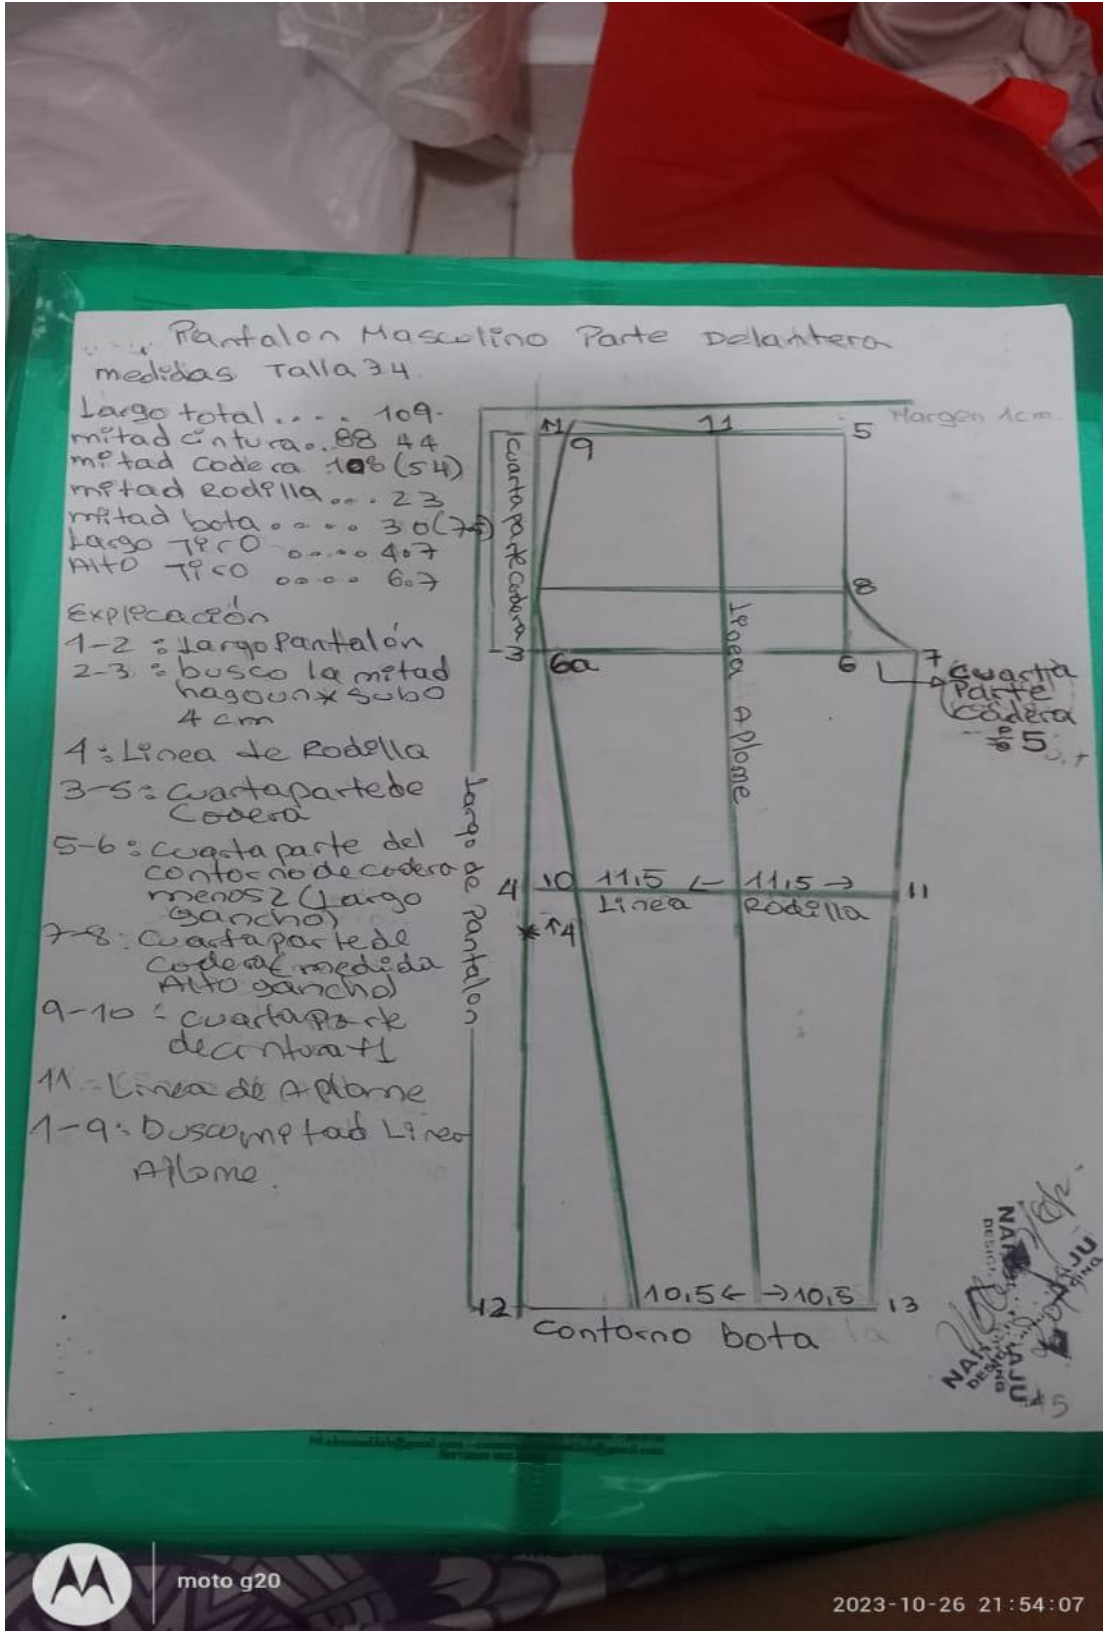 Pantalon Masculino Parte Delantera
medidas Talla 34
Largo total.... 109.
mitad cintura.. 88 44
mitad codera 108 (54)
mitad Rodilla... 23
mitad bota.... 30
Largo Tiro ..... 4.7
Alto Tiro .... 6.7
Explicación
1-2 : Largo Pantalón
2-3 : busco la mitad
hago un * subo
4 cm
4: Linea de Rodilla
3-5: cuarta parte de
Codera
5-6: cuarta parte del
contorno de codera
menos 2 (Largo
gancho)
7-8: Cuarta parte de
codera (medida
Alto gancho)
9-10 = cuarta parte
de cintura +1
11.- Linea de Aplome
1-9: Busco mitad Linea
Aplome.
Margen 1cm
11
5
9
Cuarta parte Codera
8
3
6a
6
7
Cuarta
Parte
Cadera
5
Linea Aplome
Largo de Pantalon
4
10
11,5 ← 11,5 →
11
Linea
Rodilla
* ↑4
12
10,5 ← → 10,5
13
Contorno bota
NANJU
DESIGNING
NANJU
DESIGNING
moto g20
2023-10-26 21:54:07